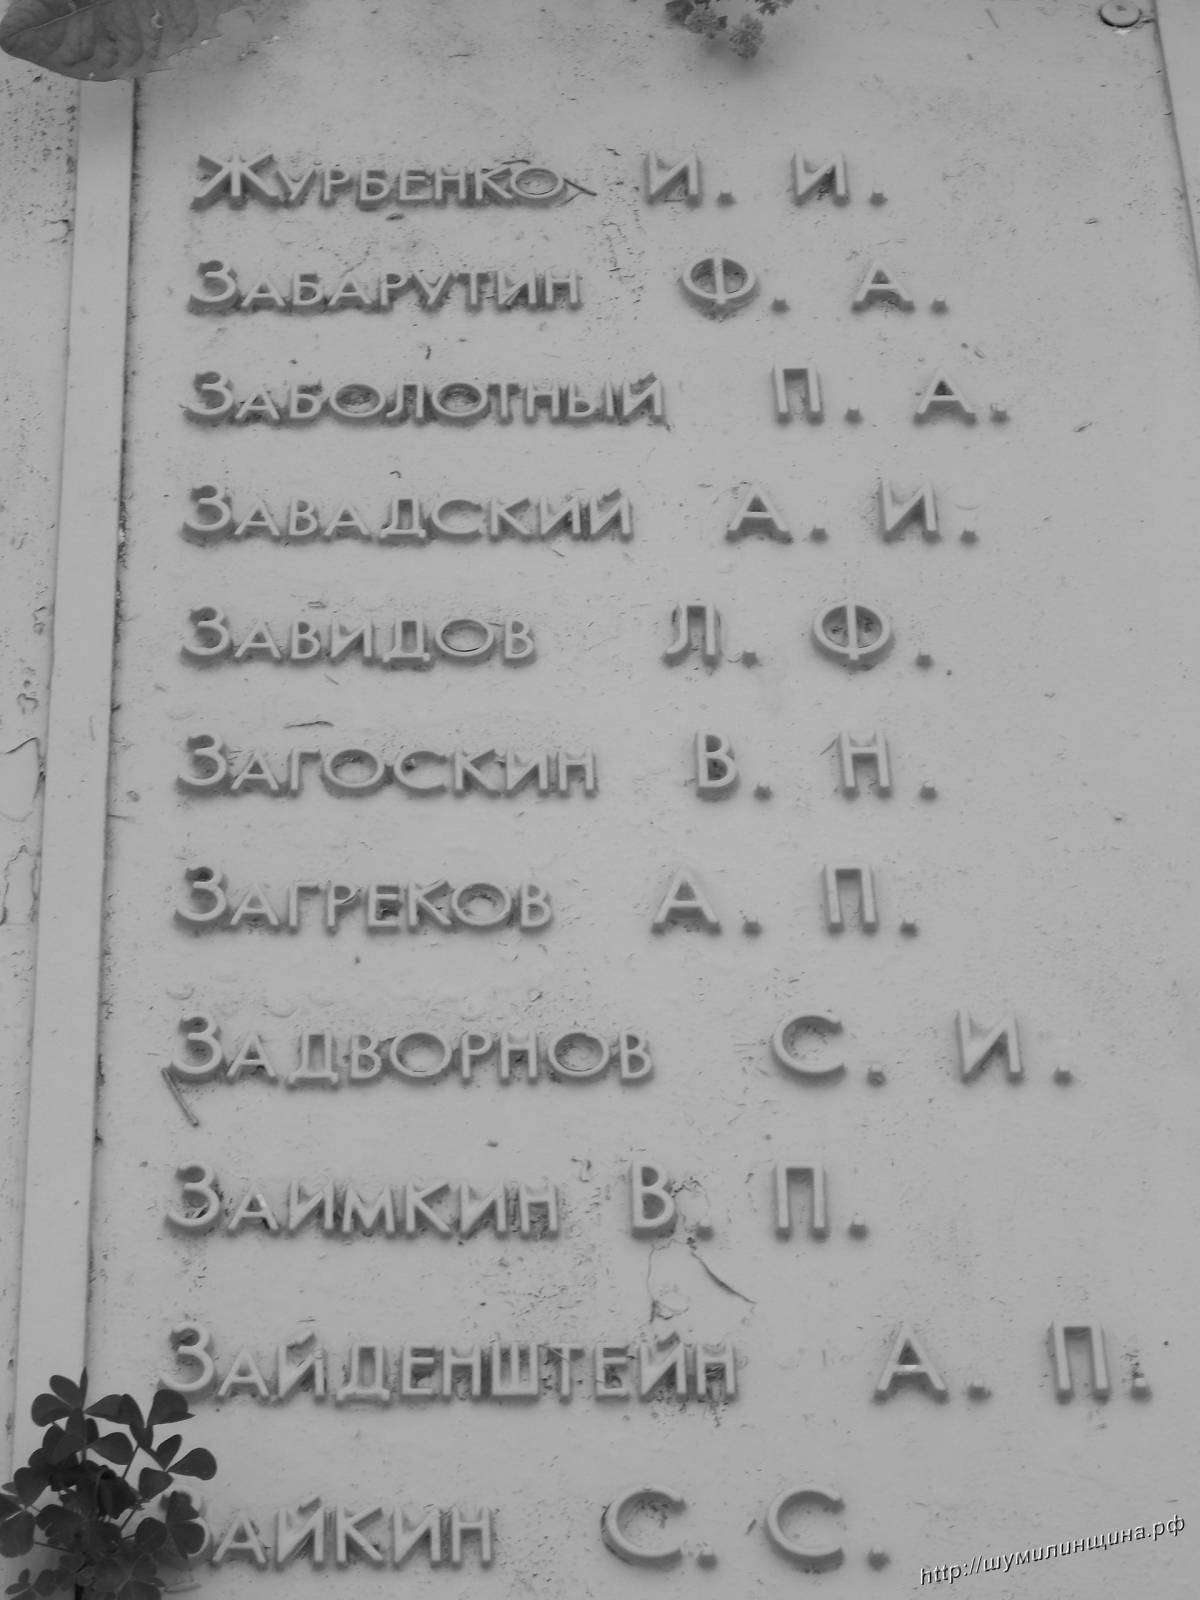 Журбенко И. И.
Забарутин Ф. А.
Заболотный П. А.
Завадский А. И.
Завидов Л. Ф.
Загоскин В. Н.
Загреков А. П.
Задворнов С. И.
Заимкин В. П.
Зайденштейн А. П.
Зайкин С. С.
http://шумилинщина.рф